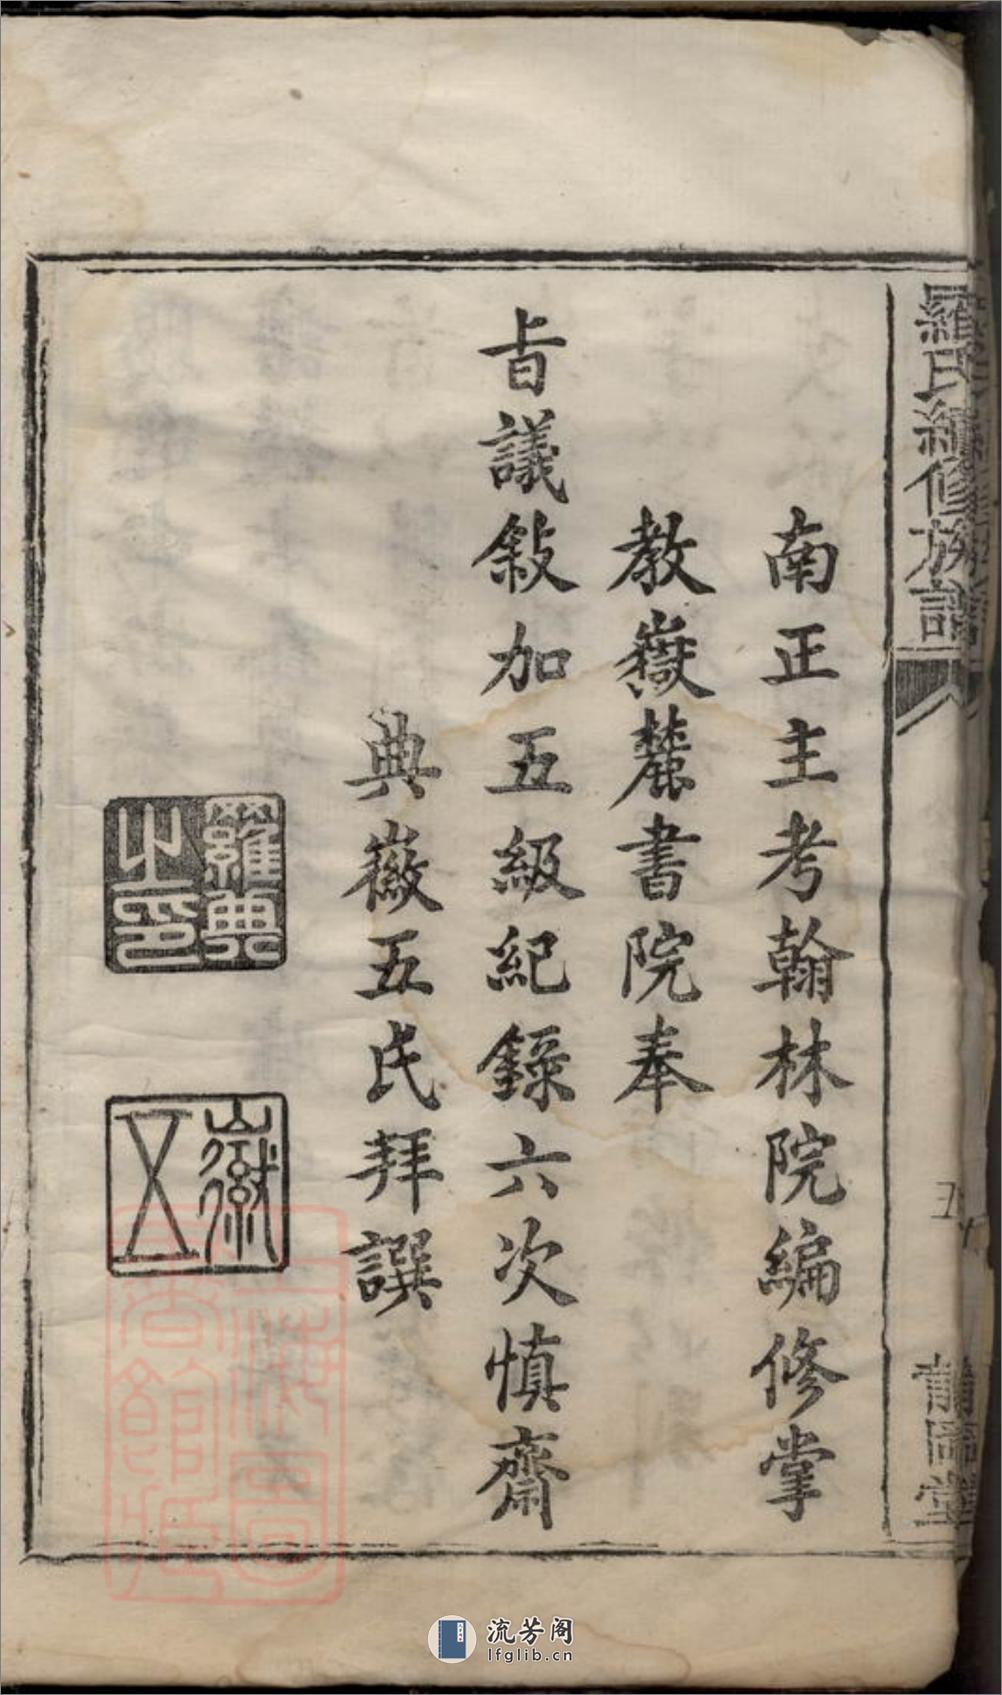 羅氏續修族譜
南正主考翰林院編修掌
教嶽麓書院奉
旨議敍加五級紀錄六次慎齋
典徽五氏拜譔
羅典之印
徽五
上海圖書館藏
流芳阁
lfglib.cn